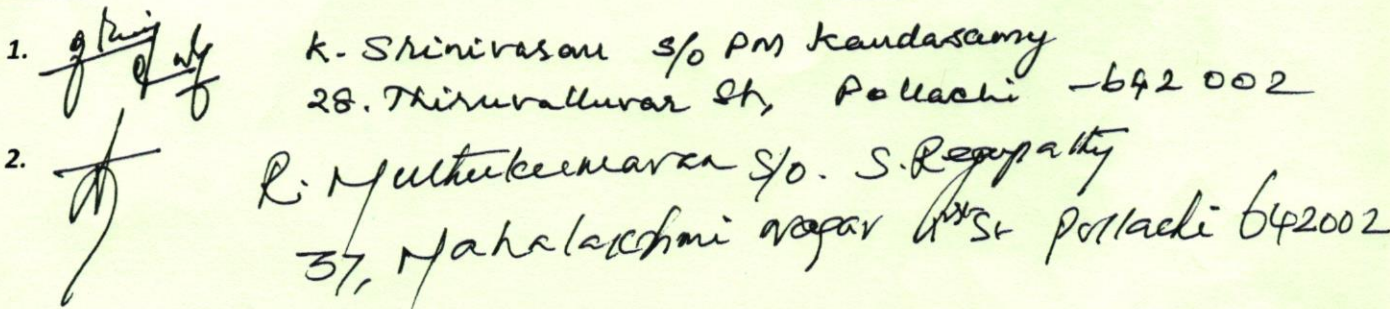 1. K. Srinivasan s/o PM Kandasamy
28. Thiruvalluvar St, Pollachi - 642 002
2. R. Muthukumaran S/o. S. Regupathy
37, Mahalakshmi nagar St Pollachi 642002